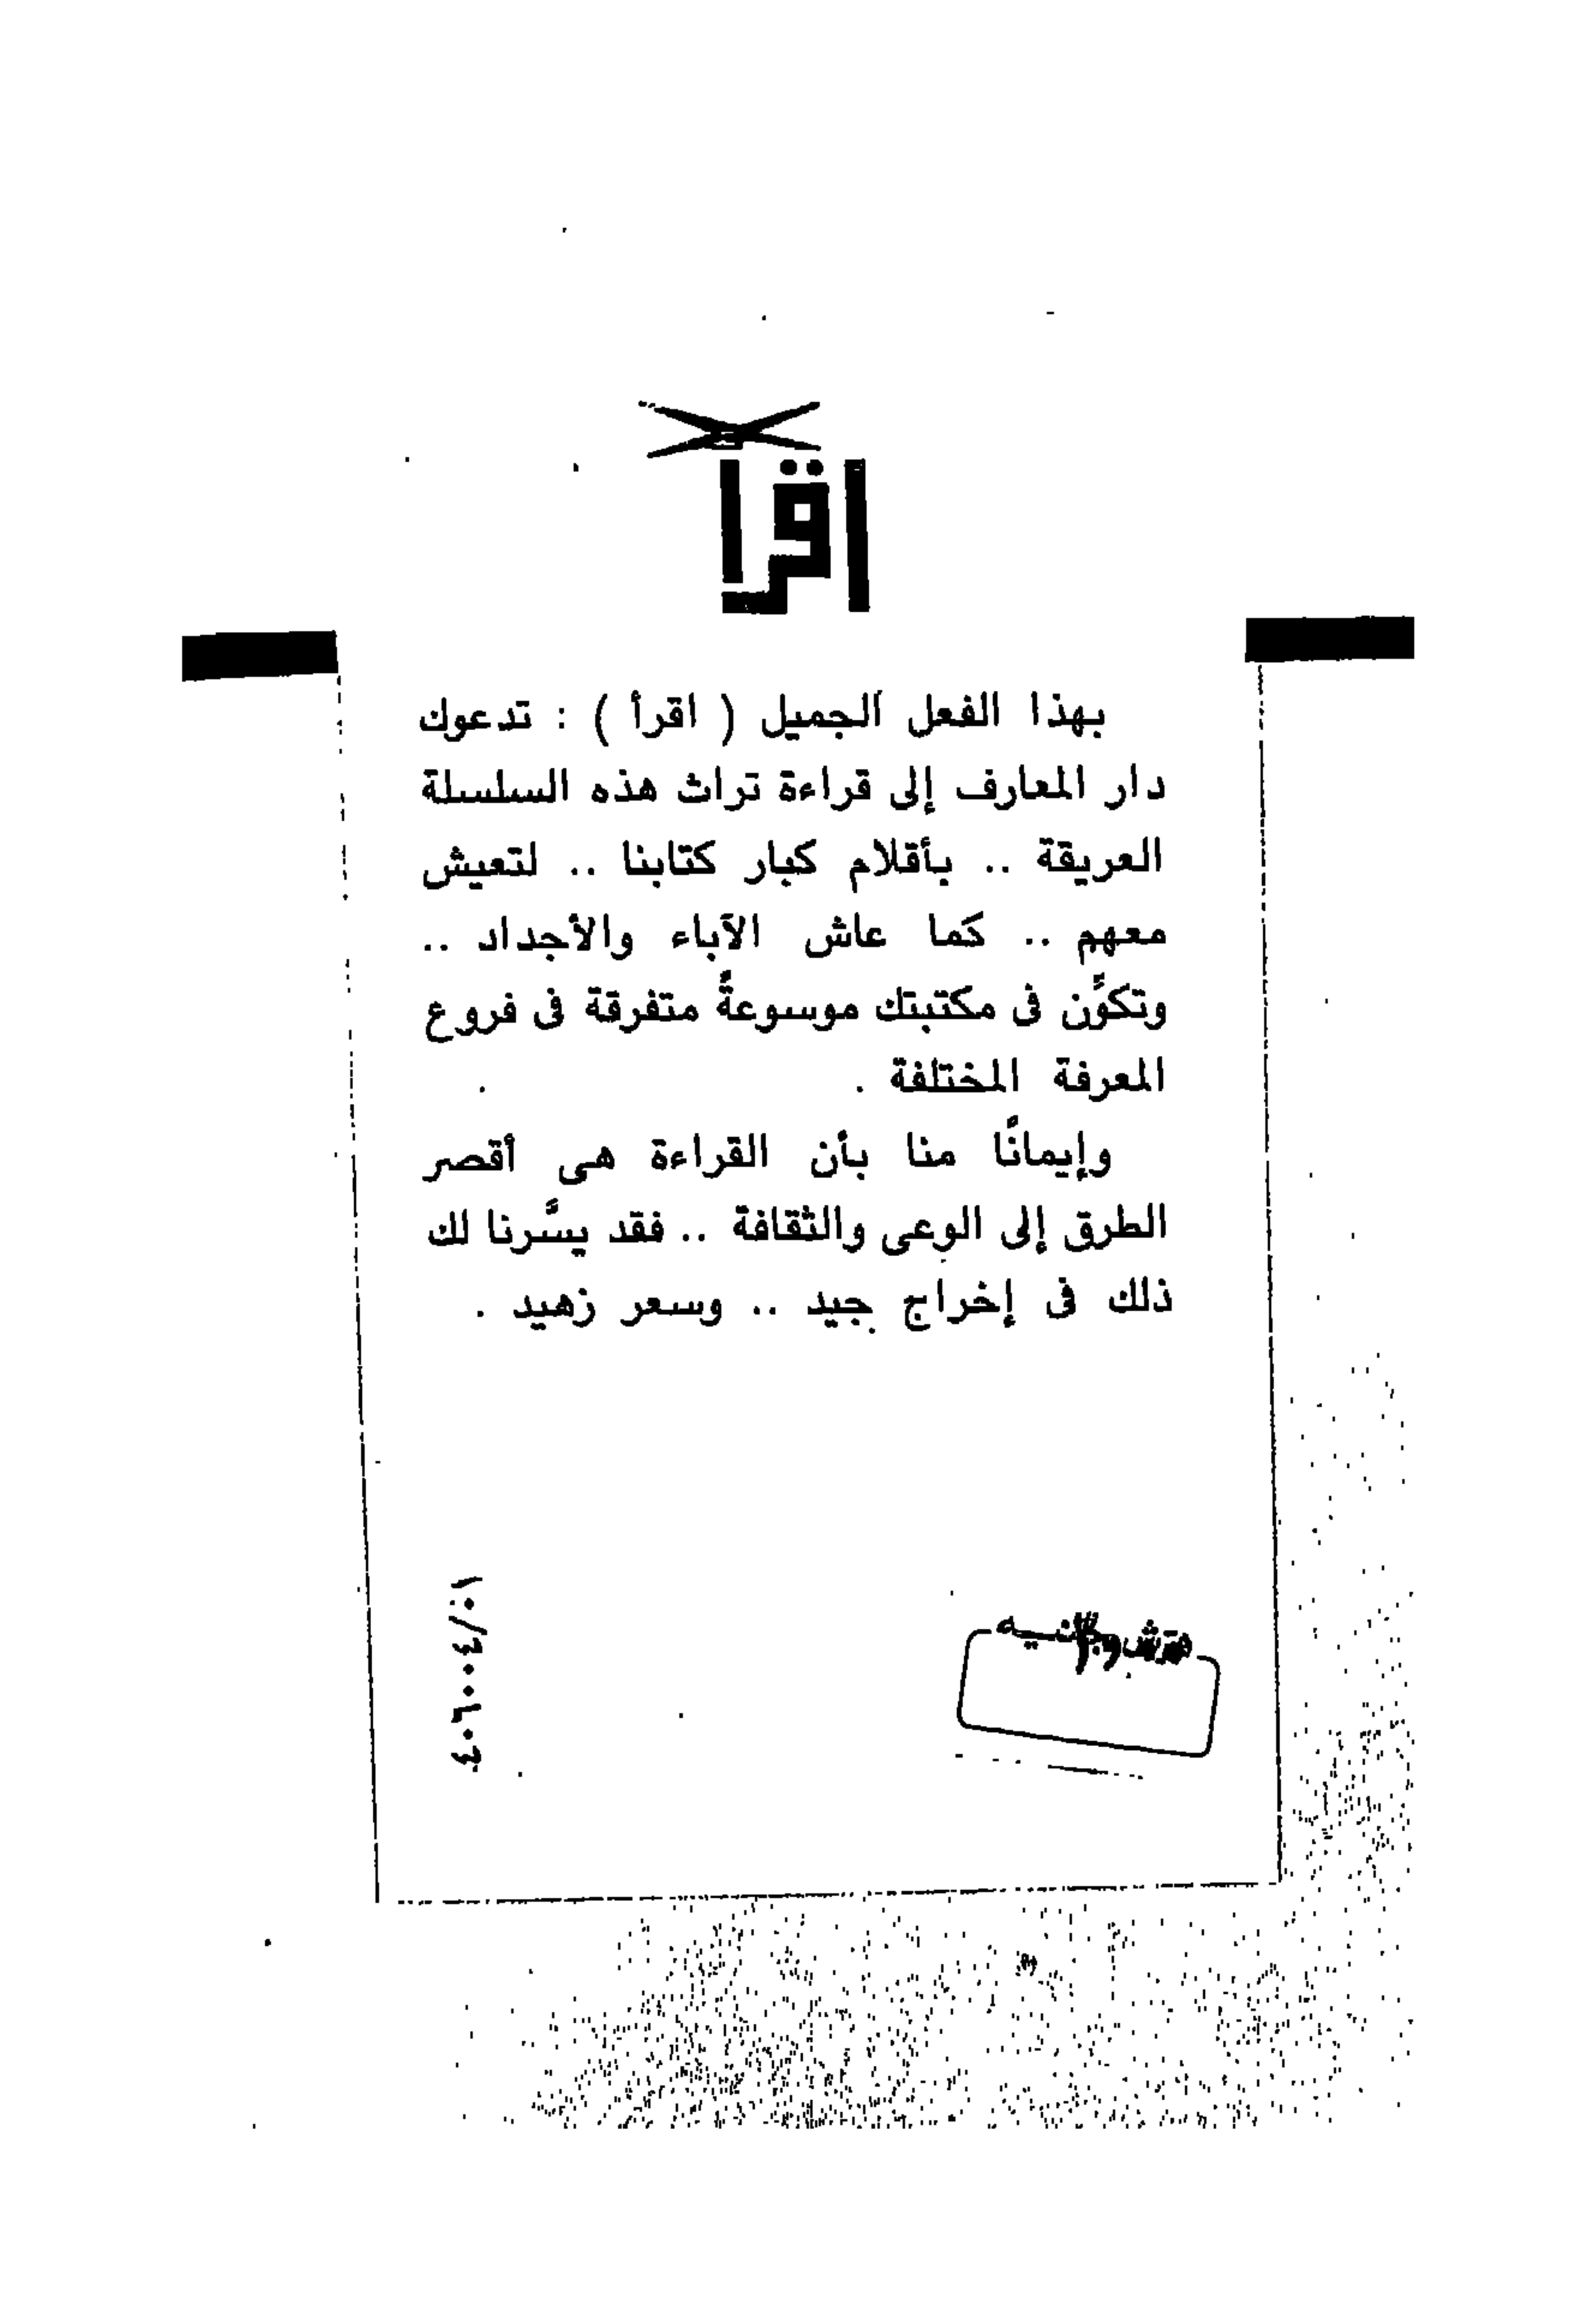 اقرأ
بهذا الفعل الجميل ( اقرأ ) : تدعوك
دار المعارف إلى قراءة تراث هذه السلسلة
العريقة .. بأقلام كبار كتابنا .. لتعيش
معهم .. كما عاش الآباء والأجداد ..
وتكوِّن فى مكتبتك موسوعةً متفرقة فى فروع
المعرفة المختلفة .
وإيمانًا منا بأن القراءة هى أقصر
الطرق إلى الوعى والثقافة .. فقد يسَّرنا لك
ذلك فى إخراج جيد .. وسعر زهيد .
٤٠٦٠٠٤/٠١